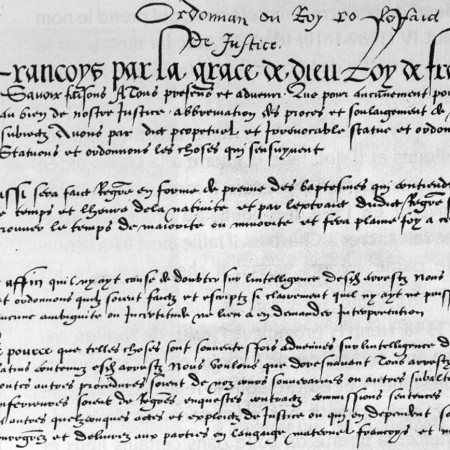 Ordonnan du Roy
De Justice.
Francoys par la grace de dieu Roy de fra
Savoir faisons A Tous presens et advenir Que pour aucunement po
au bien de nostre Justice abbreviation des proces et soulagement de
subiectz Avons par dict perpetuel et irrevocable statue et ordon
Statuons et ordonnons les choses qui sensuyvent
Aussi sera faict Regre en forme de preuve des baptesmes qui contiendr
le temps et lheure de la nativite et par lextraict dudict Regre
prouver le temps de maiorite ou minorite et fera plaine foy a c
Et affin quil ny ayt cause de doubter sur lintelligence desdz arrestz Nous
et ordonnons quilz soient faictz et escriptz si clairement quil ny ayt ne puis
aucune ambiguite ou Incertitude ne lieu a en demander Interpretation
Et pource que telles choses sont souvent esfois advenues sur lintelligence d
latins contenuz esdz arrestz Nous voulons que doresnavant Tous arrestz
toutes autres procedures soient de noz cours souveraines ou autres subalt
Inferieures soient de Regres enquestes contractz commissions sentences
autres quelzconques actes et exploictz de Justice ou qui en dependent so
enregrez et delivrez aux parties en langage maternel francoys et n